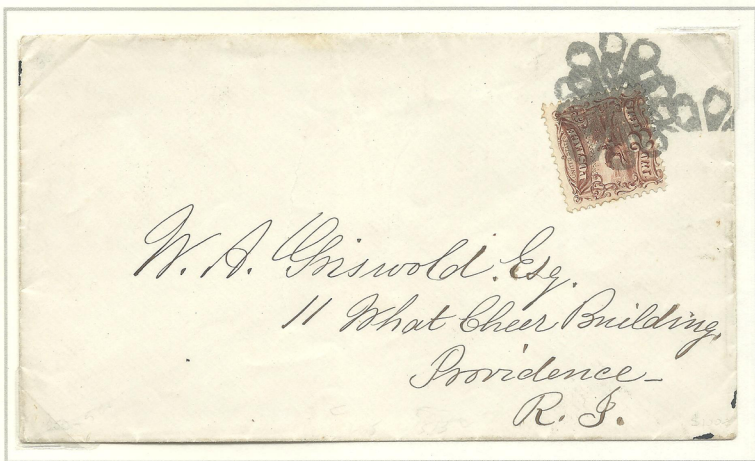 W. A. Griswold. Esq.
11 What Cheer Building,
Providence—
R. I.